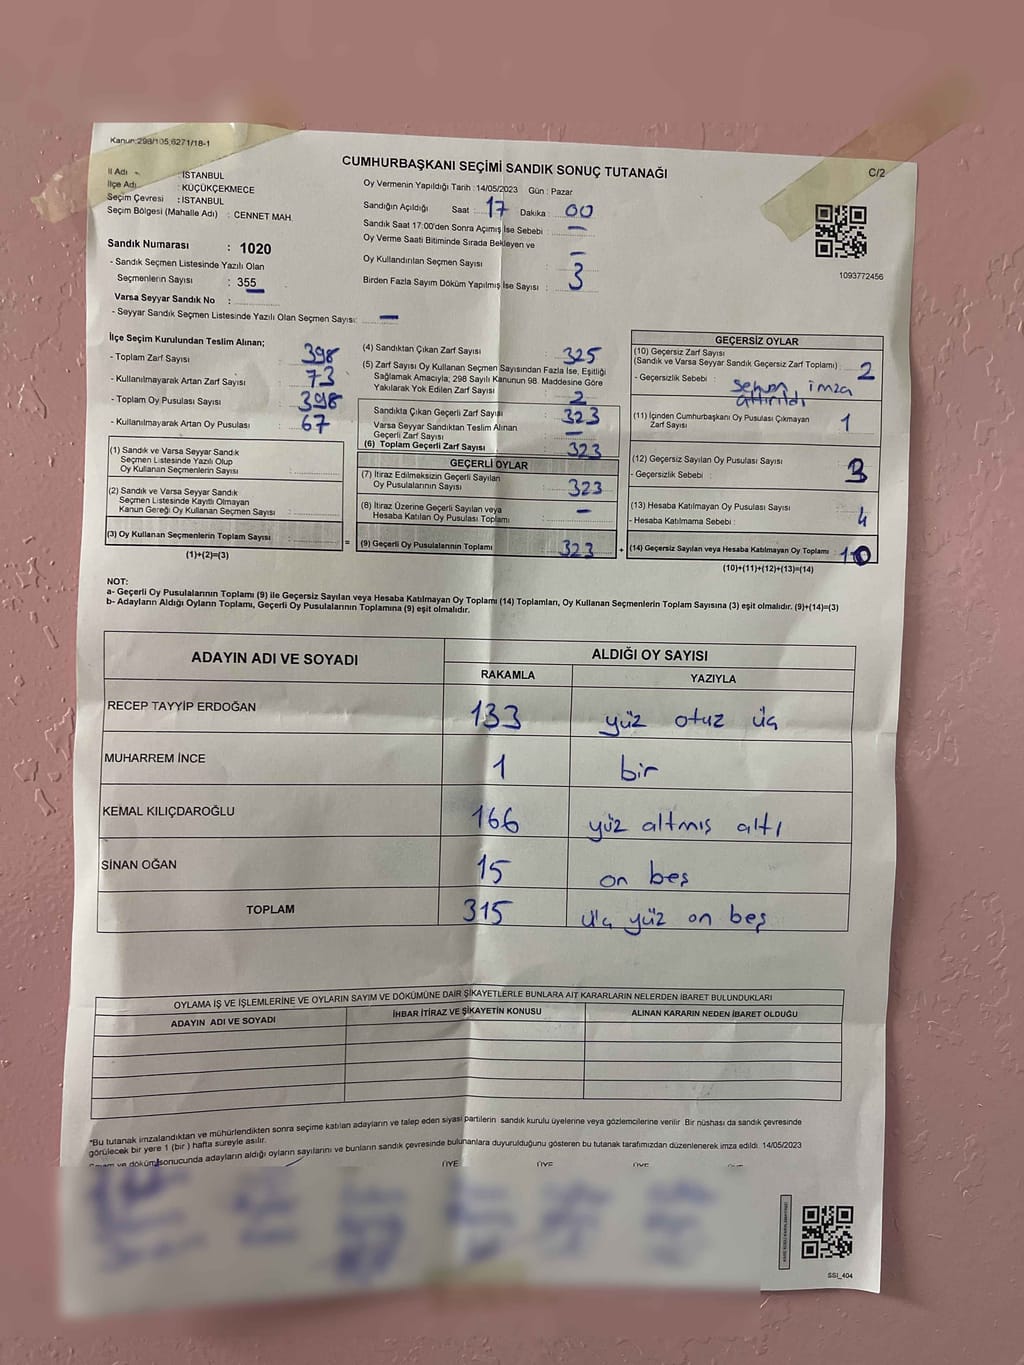 Kanun:298/105;6271/18-1
CUMHURBAŞKANI SEÇİMİ SANDIK SONUÇ TUTANAĞI
C/2
İl Adı : İSTANBUL
İlçe Adı : KÜÇÜKÇEKMECE
Seçim Çevresi : İSTANBUL
Seçim Bölgesi (Mahalle Adı) : CENNET MAH.
Sandık Numarası : 1020
- Sandık Seçmen Listesinde Yazılı Olan
Seçmenlerin Sayısı : 355
Varsa Seyyar Sandık No :
- Seyyar Sandık Seçmen Listesinde Yazılı Olan Seçmen Sayısı: —
Oy Vermenin Yapıldığı Tarih : 14/05/2023 Gün : Pazar
Sandığın Açıldığı Saat : 17 Dakika : 00
Sandık Saat 17:00'den Sonra Açımış İse Sebebi : —
Oy Verme Saati Bitiminde Sırada Bekleyen ve
Oy Kullandırılan Seçmen Sayısı : —
Birden Fazla Sayım Döküm Yapılmış İse Sayısı : 3
1093772456
İlçe Seçim Kurulundan Teslim Alınan;
- Toplam Zarf Sayısı 398
- Kullanılmayarak Artan Zarf Sayısı 73
- Toplam Oy Pusulası Sayısı 398
- Kullanılmayarak Artan Oy Pusulası 67
(1) Sandık ve Varsa Seyyar Sandık
Seçmen Listesinde Yazılı Olup
Oy Kullanan Seçmenlerin Sayısı :
(2) Sandık ve Varsa Seyyar Sandık
Seçmen Listesinde Kayıtlı Olmayan
Kanun Gereği Oy Kullanan Seçmen Sayısı :
(3) Oy Kullanan Seçmenlerin Toplam Sayısı :
(1)+(2)=(3)
=
(4) Sandıktan Çıkan Zarf Sayısı : 325
(5) Zarf Sayısı Oy Kullanan Seçmen Sayısından Fazla İse, Eşitliği
Sağlamak Amacıyla; 298 Sayılı Kanunun 98. Maddesine Göre
Yakılarak Yok Edilen Zarf Sayısı : 2
Sandıkta Çıkan Geçerli Zarf Sayısı : 323
Varsa Seyyar Sandıktan Teslim Alınan
Geçerli Zarf Sayısı : —
(6) Toplam Geçerli Zarf Sayısı : 323
GEÇERLİ OYLAR
(7) İtiraz Edilmeksizin Geçerli Sayılan
Oy Pusulalarının Sayısı : 323
(8) İtiraz Üzerine Geçerli Sayılan veya
Hesaba Katılan Oy Pusulası Toplamı : —
(9) Geçerli Oy Pusulalarının Toplamı : 323
+
GEÇERSİZ OYLAR
(10) Geçersiz Zarf Sayısı
(Sandık ve Varsa Seyyar Sandık Geçersiz Zarf Toplamı) : 2
- Geçersizlik Sebebi : imza
attırıldı
(11) İçinden Cumhurbaşkanı Oy Pusulası Çıkmayan
Zarf Sayısı : 1
(12) Geçersiz Sayılan Oy Pusulası Sayısı : 3
- Geçersizlik Sebebi :
(13) Hesaba Katılmayan Oy Pusulası Sayısı : 4
- Hesaba Katılmama Sebebi :
(14) Geçersiz Sayılan veya Hesaba Katılmayan Oy Toplamı : 10
(10)+(11)+(12)+(13)=(14)
NOT:
a- Geçerli Oy Pusulalarının Toplamı (9) ile Geçersiz Sayılan veya Hesaba Katılmayan Oy Toplamı (14) Toplamları, Oy Kullanan Seçmenlerin Toplam Sayısına (3) eşit olmalıdır. (9)+(14)=(3)
b- Adayların Aldığı Oyların Toplamı, Geçerli Oy Pusulalarının Toplamına (9) eşit olmalıdır.
ADAYIN ADI VE SOYADI ALDIĞI OY SAYISI
RAKAMLA YAZIYLA
RECEP TAYYİP ERDOĞAN 133 yüz otuz üç
MUHARREM İNCE 1 bir
KEMAL KILIÇDAROĞLU 166 yüz altmış altı
SİNAN OĞAN 15 on beş
TOPLAM 315 üç yüz on beş
OYLAMA İŞ VE İŞLEMLERİNE VE OYLARIN SAYIM VE DÖKÜMÜNE DAİR ŞİKAYETLERLE BUNLARA AİT KARARLARIN NELERDEN İBARET BULUNDUKLARI
ADAYIN ADI VE SOYADI İHBAR İTİRAZ VE ŞİKAYETİN KONUSU ALINAN KARARIN NEDEN İBARET OLDUĞU
*Bu tutanak imzalandıktan ve mühürlendikten sonra seçime katılan adayların ve talep eden siyasi partilerin sandık kurulu üyelerine veya gözlemcilerine verilir Bir nüshası da sandık çevresinde
görülecek bir yere 1 (bir) hafta süreyle asılır.
ve döküm sonucunda adayların aldığı oyların sayılarını ve bunların sandık çevresinde bulunanlara duyurulduğunu gösteren bu tutanak tarafımızdan düzenlenerek imza edildi. 14/05/2023
ÜYE ÜYE ÜYE ÜYE
SSI_404